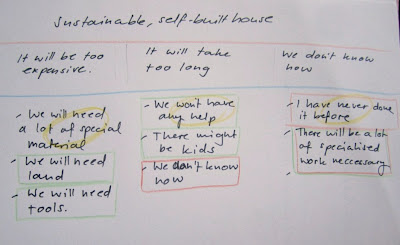 Sustainable, self-built house
It will be too
expensive.
It will take
too long
We don't know
how
- We will need
a lot of special
material
- We will need
land
- We will need
tools.
- We won't have
any help
- There might
be kids
- We don't know
how
- I have never done
it before
- There will be a lot
of specialised
work neccessary
-